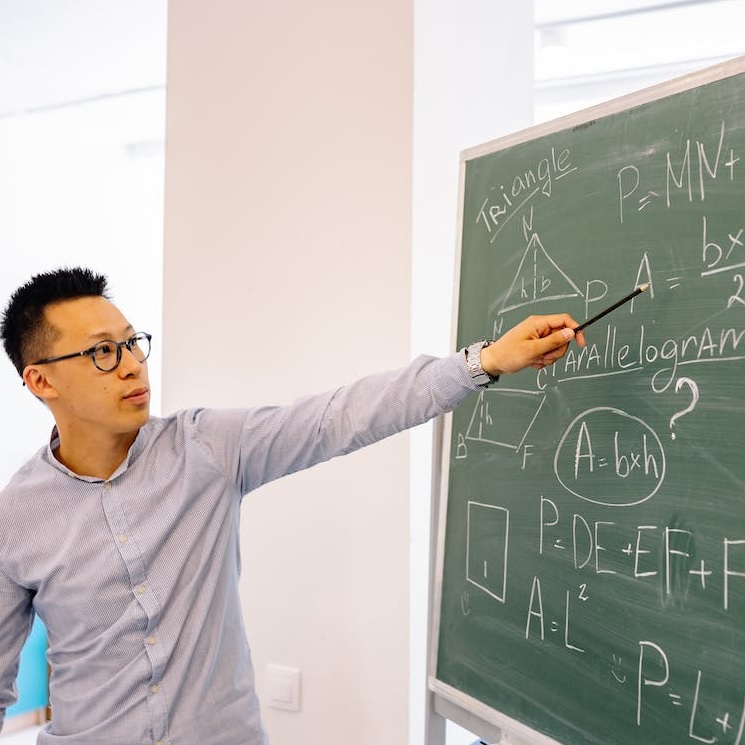 TRiangle
P=MN+
N
h b
P
A = bx
2
N
PARAllelogRAM
C
h
B F
?
A=bxh
P=DE+EF+F
A=L²
P=L+